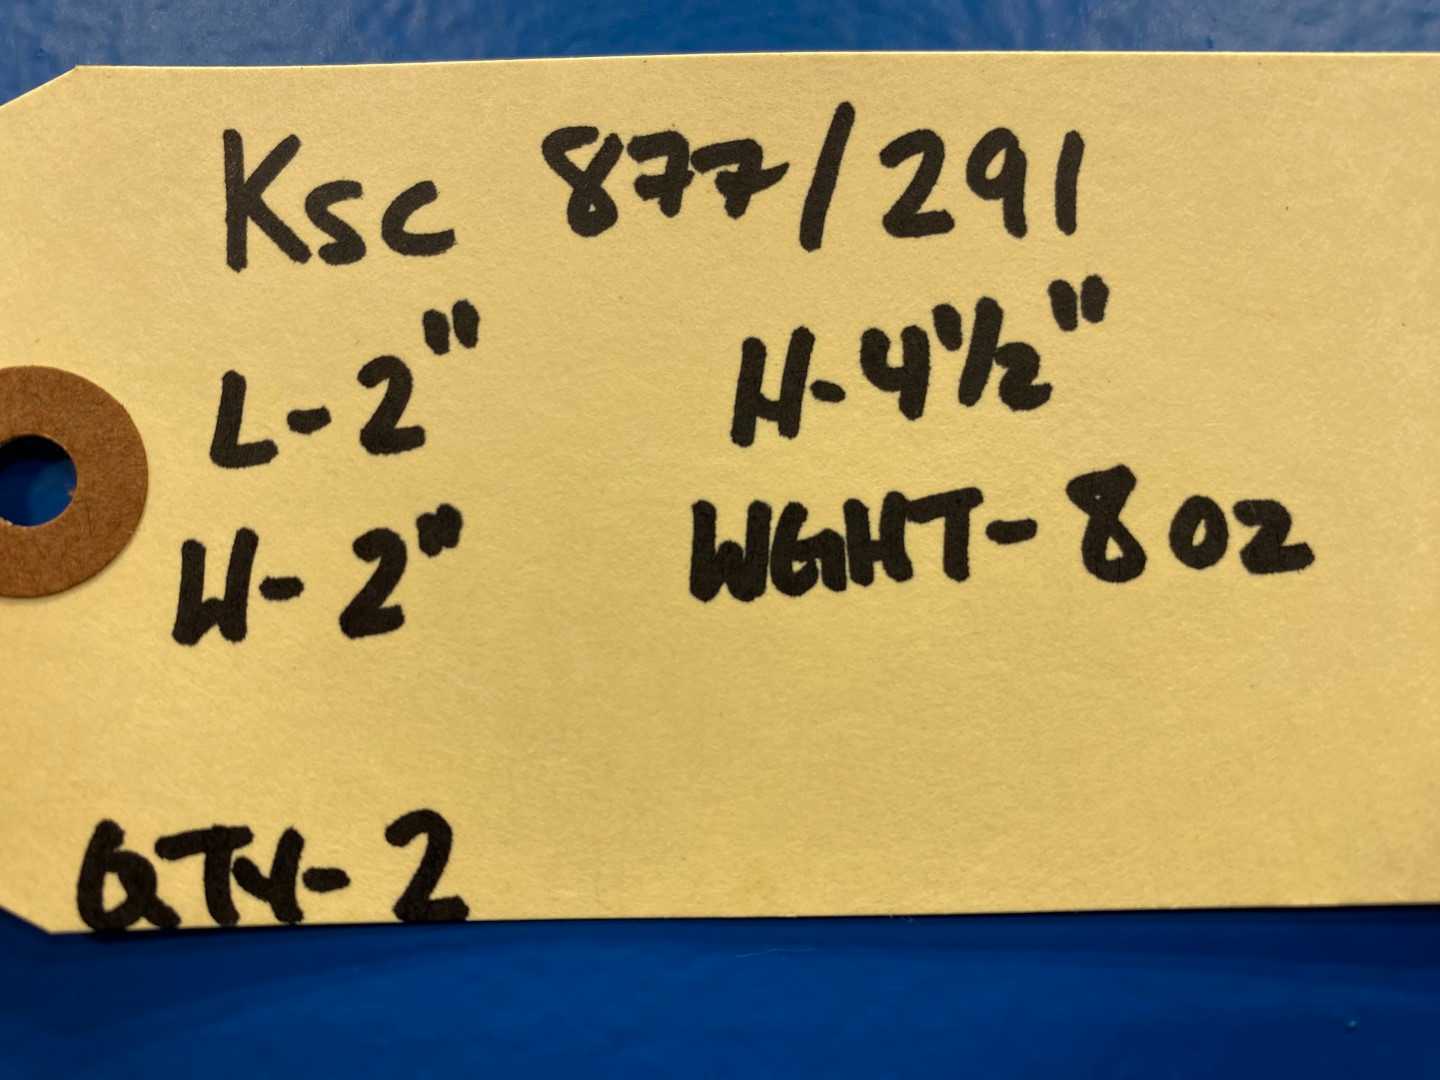 KSC 877/291
L-2" H-4½"
W-2" WGHT-8 OZ
QTY-2